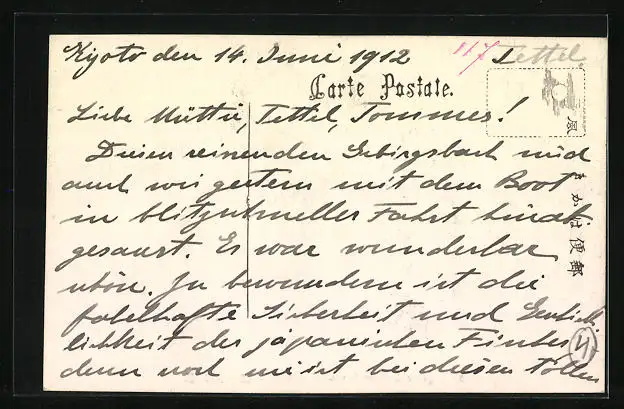 Kyoto den 14. Juni 1912
117 Tettel.
Carte Postale.
Liebe Mutti, Tettel, Tommes!
Diesen reissenden Gebirgsbach sind
auch wir gestern mit dem Boot
in blitzschneller Fahrt hinab
gesaust. Es war wunderbar
schön. Zu bewundern ist die
fabelhafte Sicherheit und Geschick
lichkeit der japanischen
denn noch nie ist bei diesen tollen
きかは便郵
4